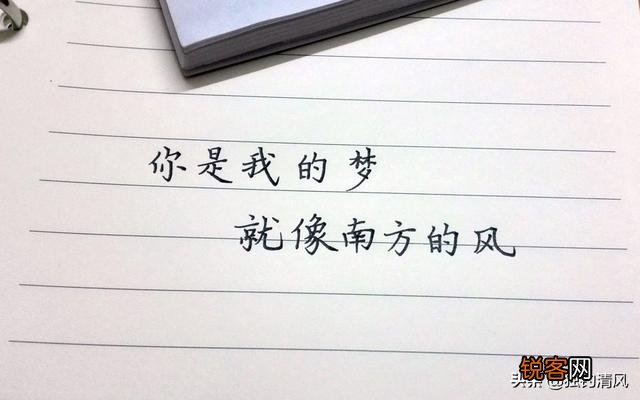 你是我的梦
就像南方的风
锐客网
头条 @独钓清风